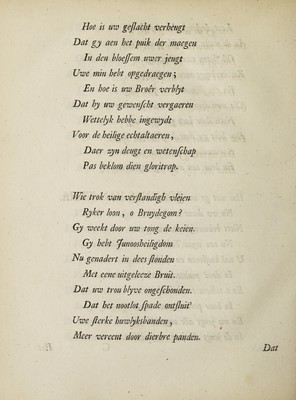 Hoe is uw geſlacht verheugt
Dat gy aen het puik der maegen
In den bloeſſem uwer jeugt
Uwe min hebt opgedraegen;
En hoe is uw Broêr verblyt
Dat hy uw gewenſcht vergaeren
Wettelyk hebbe ingewydt
Voor de heilige echtaltaeren,
Daer zyn deugt en wetenſchap
Pas beklom dien gloritrap.
Wie trok van verſtandigh vleien
Ryker loon, o Bruydegom?
Gy weekt door uw tong de keien.
Gy hebt Junoosheiligdom
Nu genadert in dees ſtonden
Met eene uitgeleeze Bruit.
Dat uw trou blyve ongeſchonden.
Dat het nootlot ſpade ontſluit
Uwe ſterke huwlyksbanden,
Meer vereent door dierbre panden.
Dat